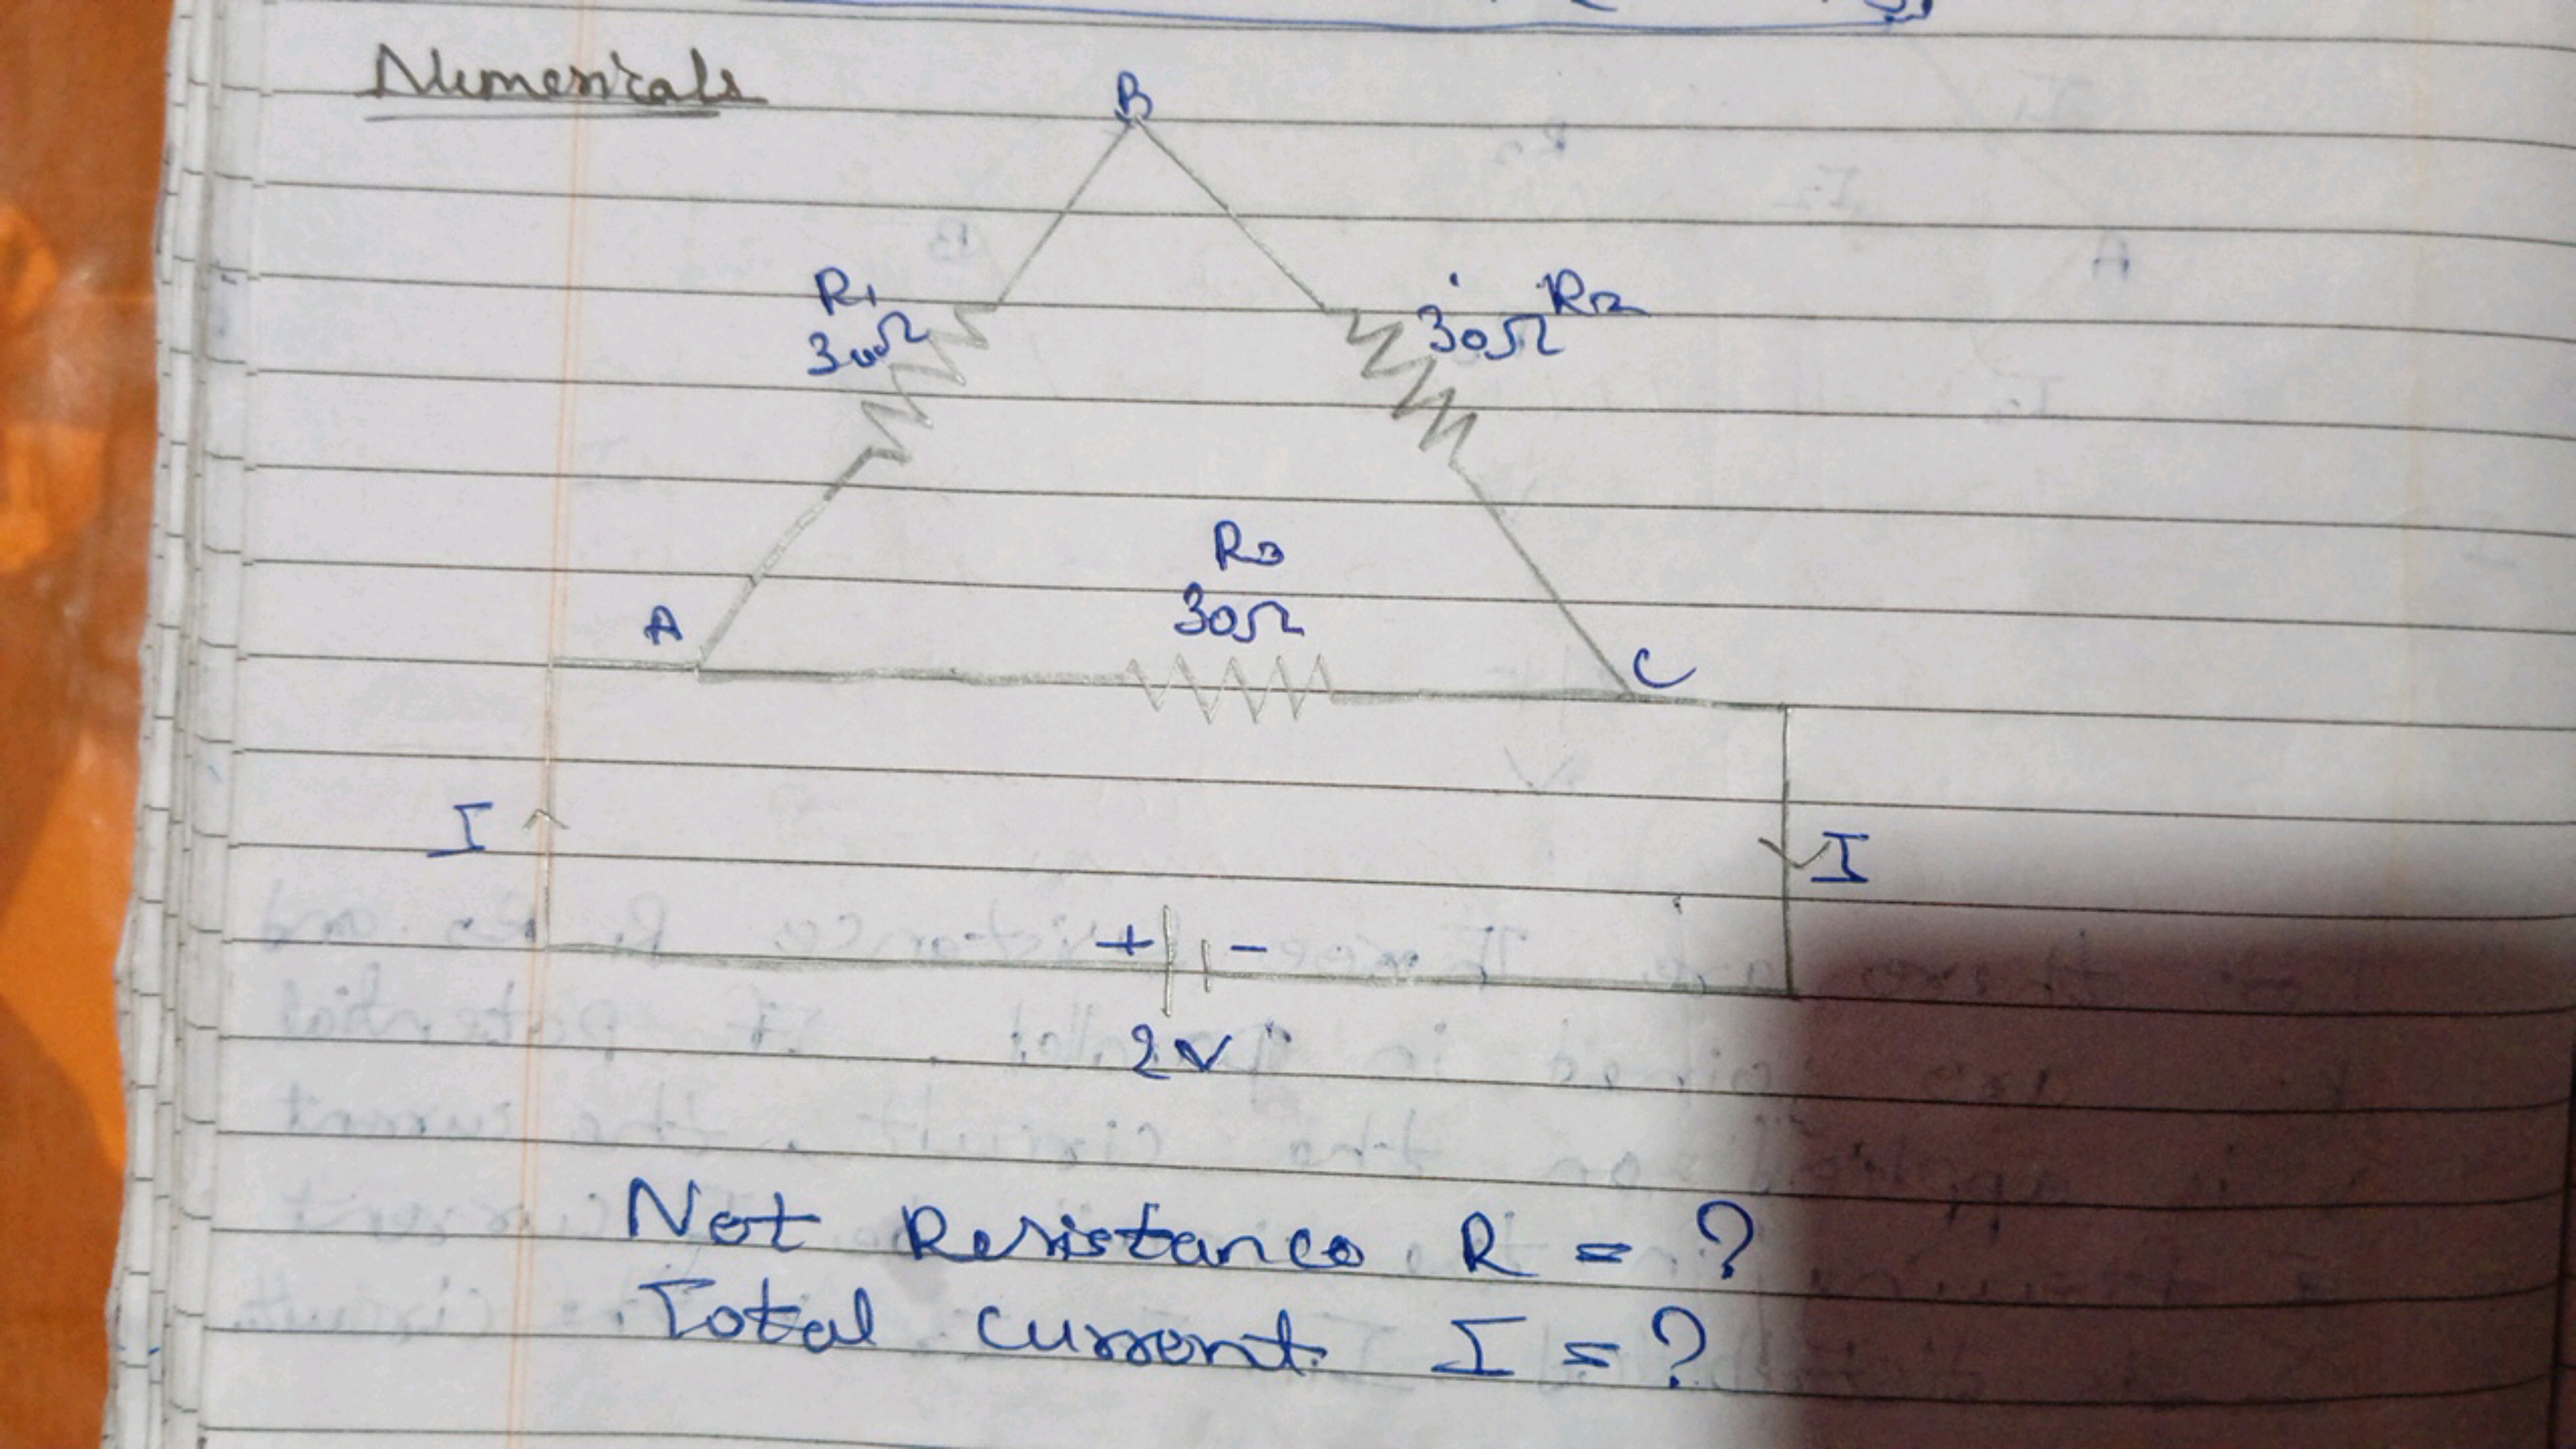 Numericals
B
R1
30Ω
30Ω R2
R3
30Ω
A
C
I
I
+ -
2V
Net Resistance R = ?
Total current I = ?